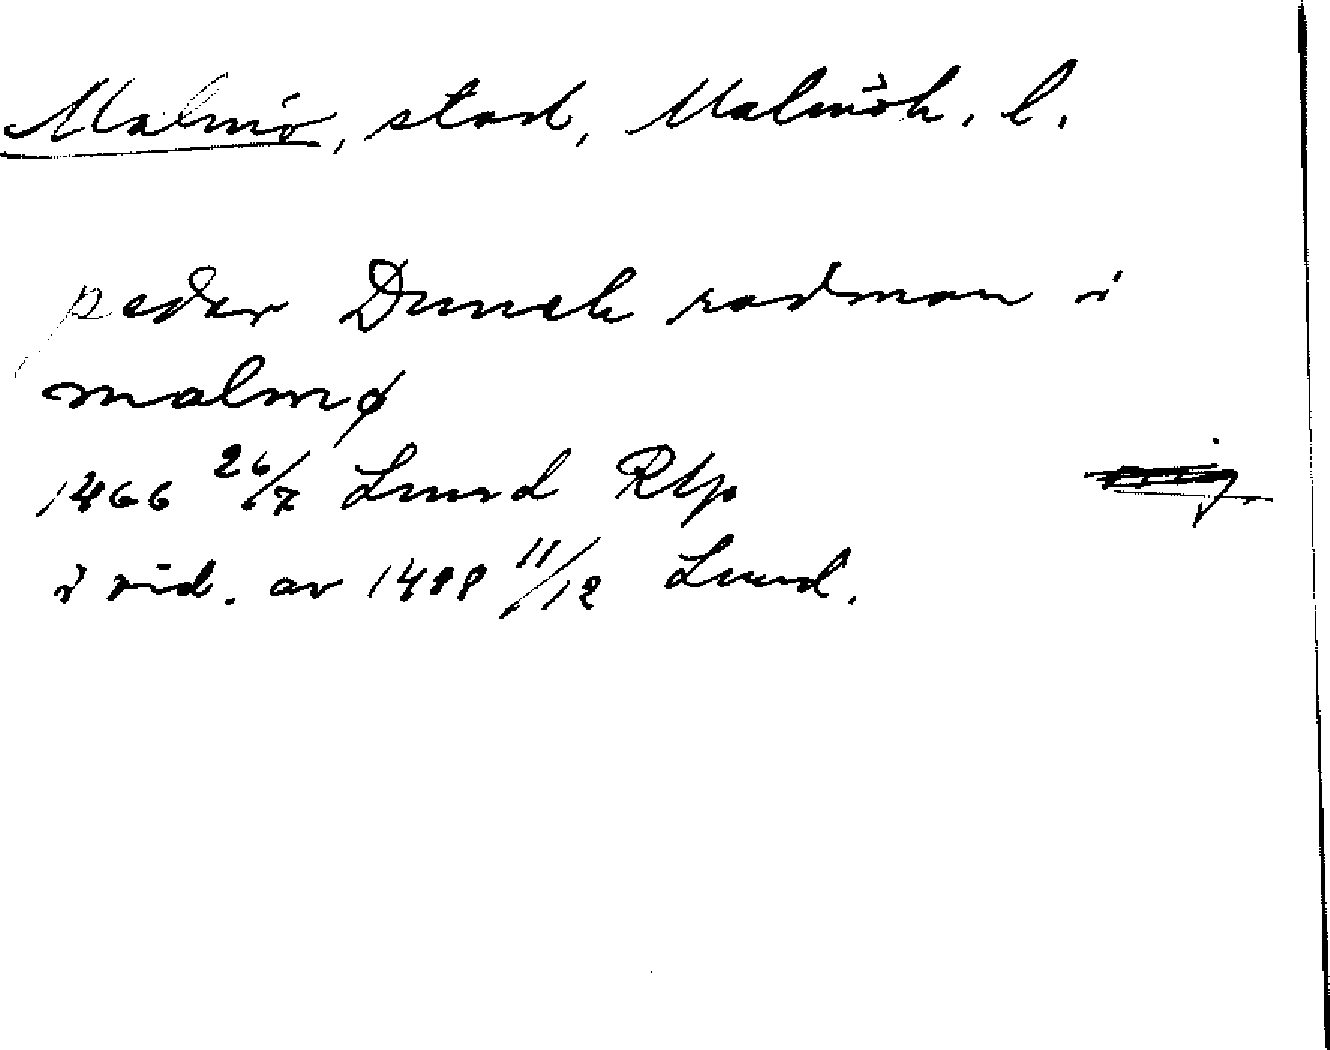 Malmö, stad, Malmöh. l.
peder Dunck radman i
malmø
1466 26/7 Lund Rtp
i vid. av 1488 11/12 Lund.